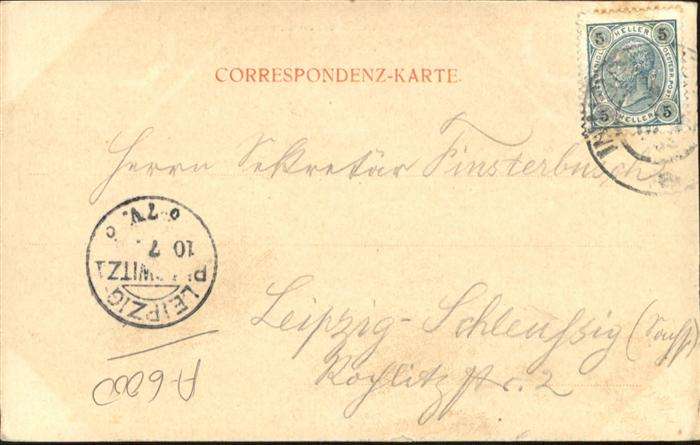 CORRESPONDENZ-KARTE.
5 HELLER 5
5 HELLER 5
Herrn Sekretär Finsterbusch
LEIPZIG-
PLAGWITZ 1
10 7
7V.
Leipzig-Schleußig (Sachs)
Rochlitzstr. 2
A-6000